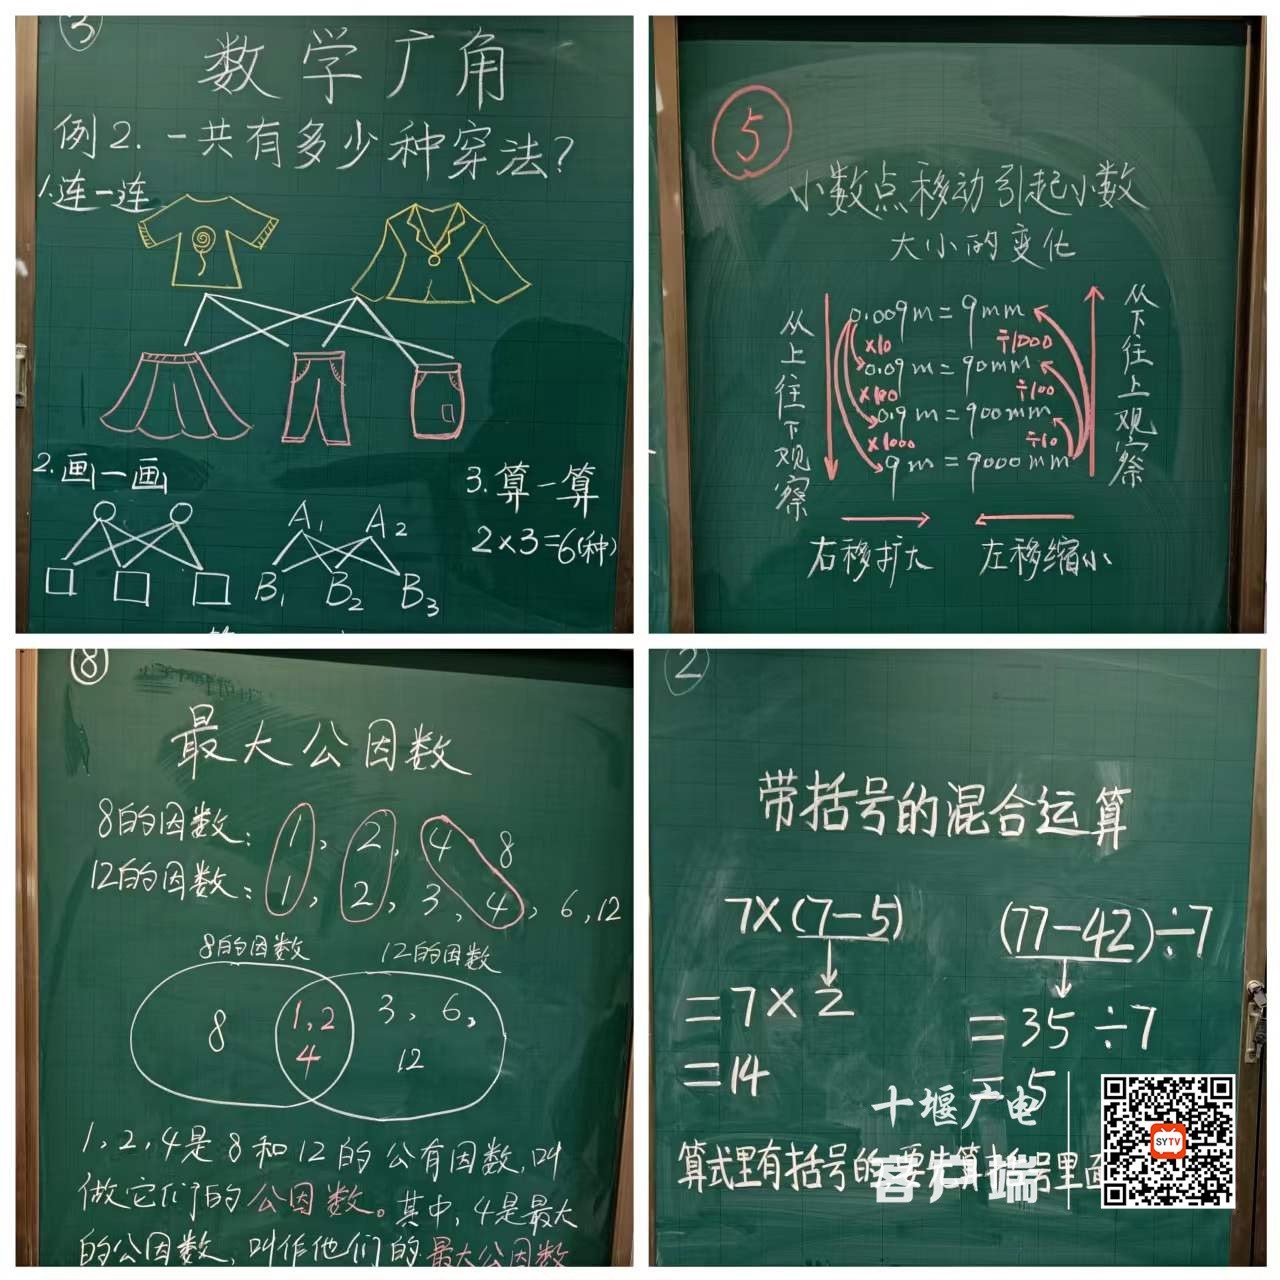 3
数学广角
例2.一共有多少种穿法?
1.连一连
2.画一画
3.算一算
2×3=6(种)
A₁ A₂
B₁ B₂ B₃
5
小数点移动引起小数
大小的变化
从上往下观察
0.009m=9mm
×10 ÷1000
0.09m=90mm
×100 ÷100
0.9m=900mm
×1000 ÷10
9m=9000mm
从下往上观察
右移扩大 左移缩小
8
最大公因数
8的因数: 1, 2, 4 8
12的因数: 1, 2, 3, 4, 6, 12
8的因数 12的因数
8 1,2 4 3, 6, 12
1,2,4是8和12的公有因数,叫
做它们的公因数。其中,4是最大
的公因数,叫作他们的最大公因数
2
带括号的混合运算
7×(7-5) (77-42)÷7
=7×2 =35÷7
=14 =5
算式里有括号的,要先算括号里面
十堰广电
客户端
SYTV